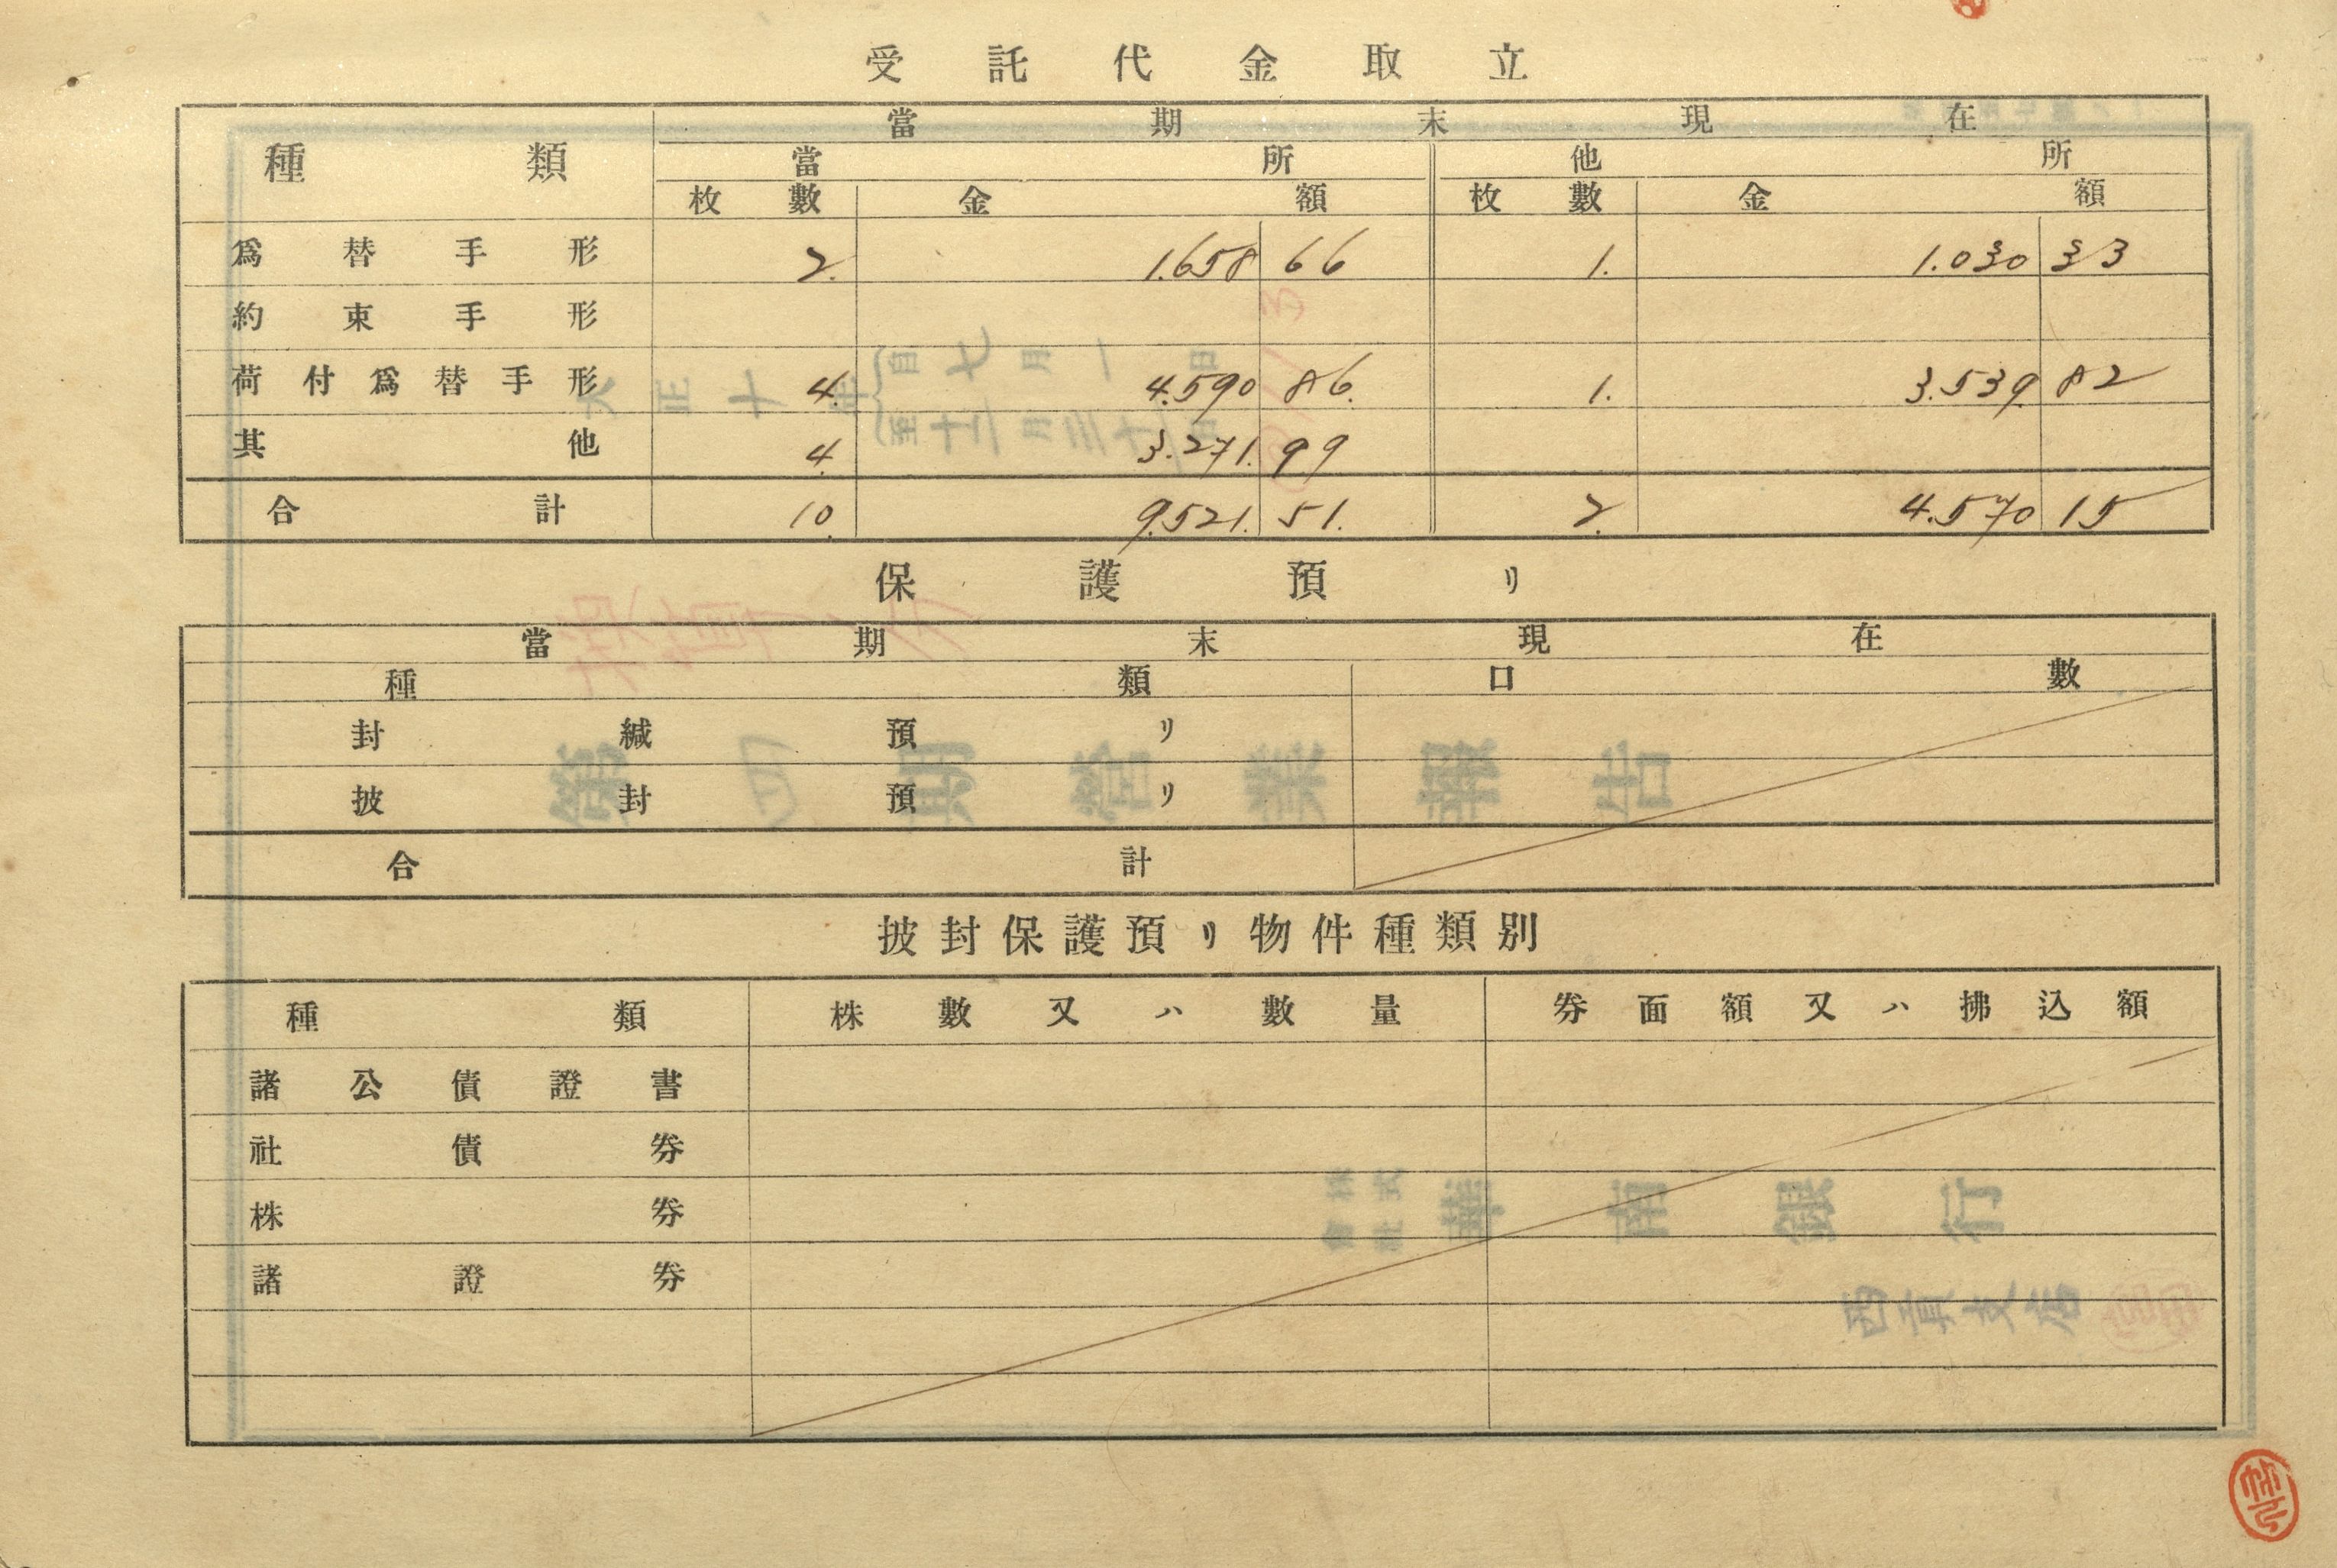 受託代金取立
種類 當期末現在
當所 他所
枚數 金額 枚數 金額
爲替手形 2. 1.658 66 1. 1.030 33
約束手形
荷付爲替手形 4. 4.590 86. 1. 3.539. 82
其他 4. 3.271. 99
合計 10. 9.521. 51. 2. 4.570 15
保護預リ
當期末現在
種類 口數
封緘預リ
披封預リ
合計
披封保護預リ物件種類別
種類 株數又ハ數量 券面額又ハ拂込額
諸公債證書
社債券
株券
諸證券
大正十年 自七月一日
至十二月三十一日
第四期營業報告
株式會社 華南銀行
西貢支店